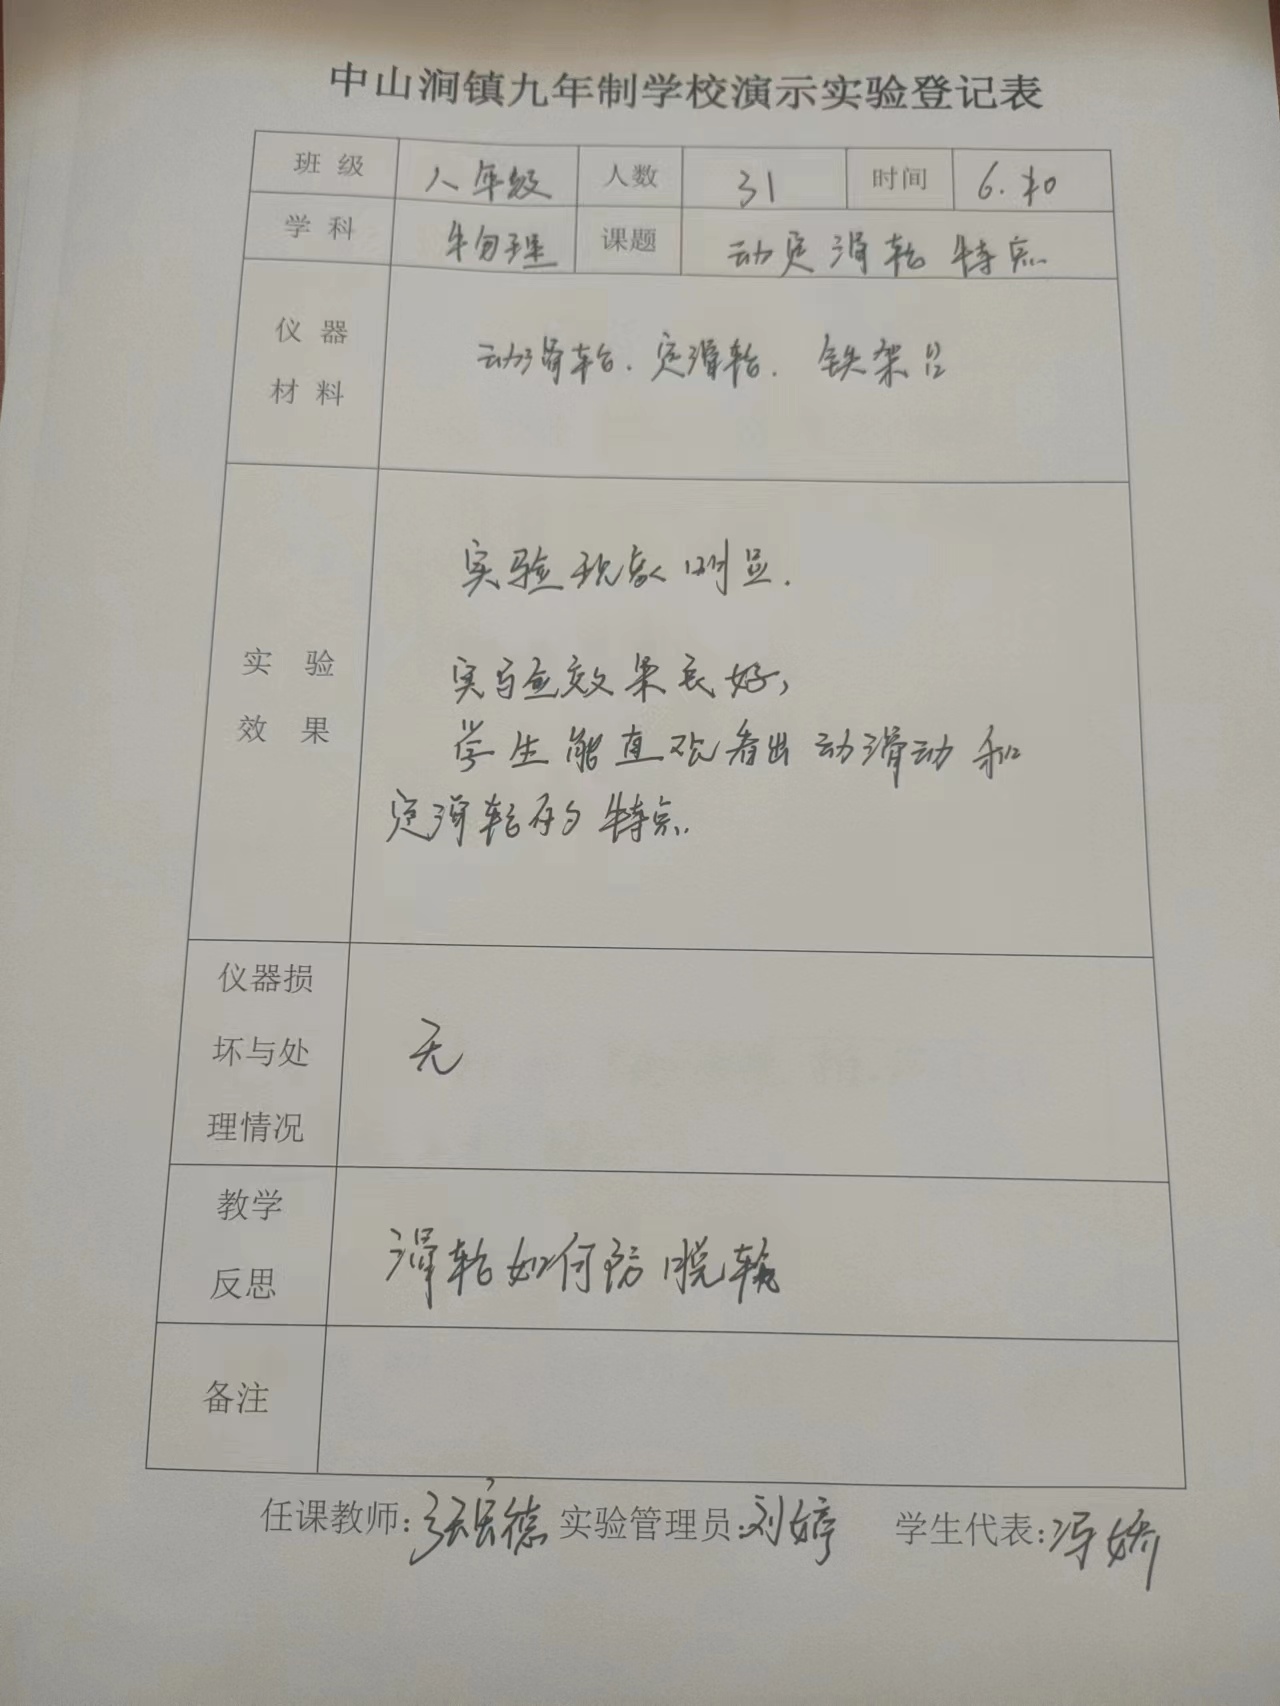 中山涧镇九年制学校演示实验登记表
班级 八年级 人数 31 时间 6.
学科 物理 课题 动定滑轮特点
仪器
材料
动滑轮. 定滑轮. 铁架台
实验
效果
实验现象明显.
实验效果良好,
学生能直观看出动滑动和
定滑轮的特点.
仪器损
坏与处
理情况
无
教学
反思
滑轮如何防脱轨
备注
任课教师: 德 实验管理员:刘婷 学生代表:冯娇